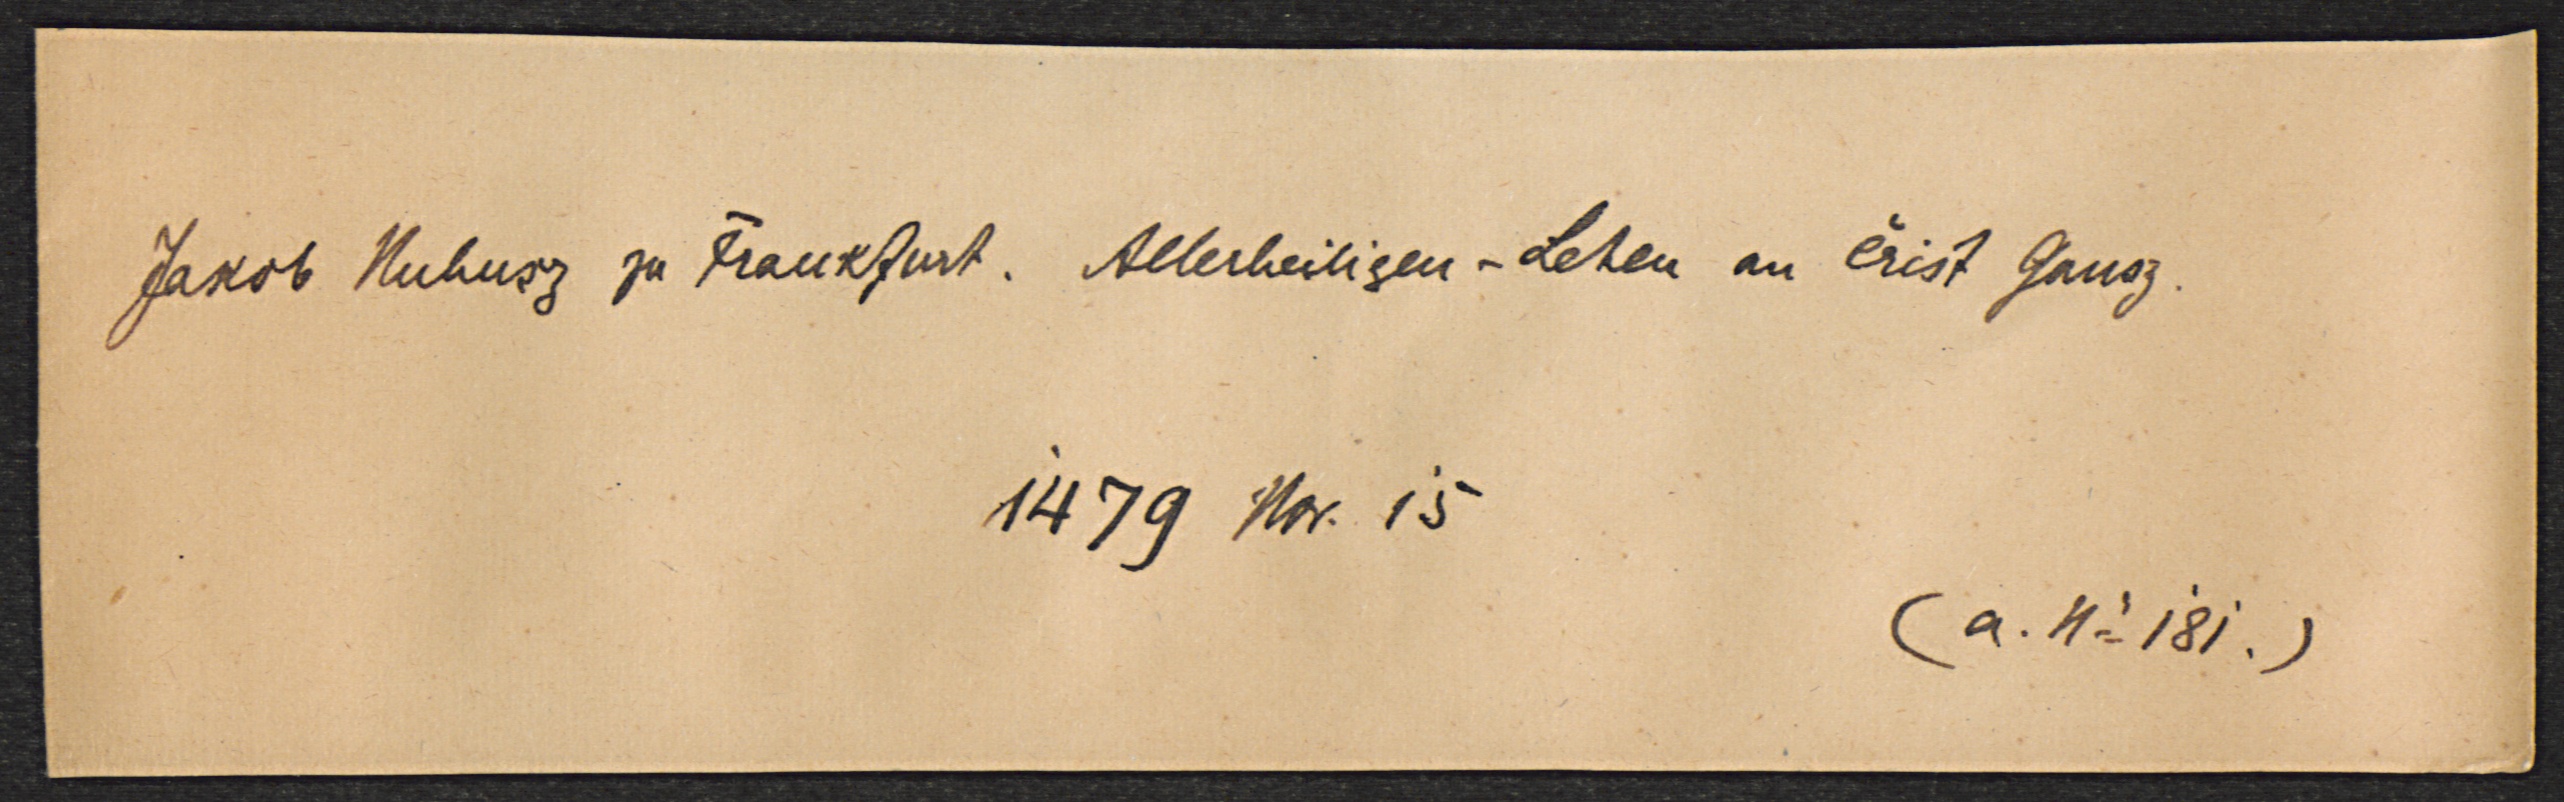 Jakob Nuhusz zu Frankfurt. Allerheiligen-Lehen an Crist Gausz.
1479 Nov. 15
(a. Nº 181.)